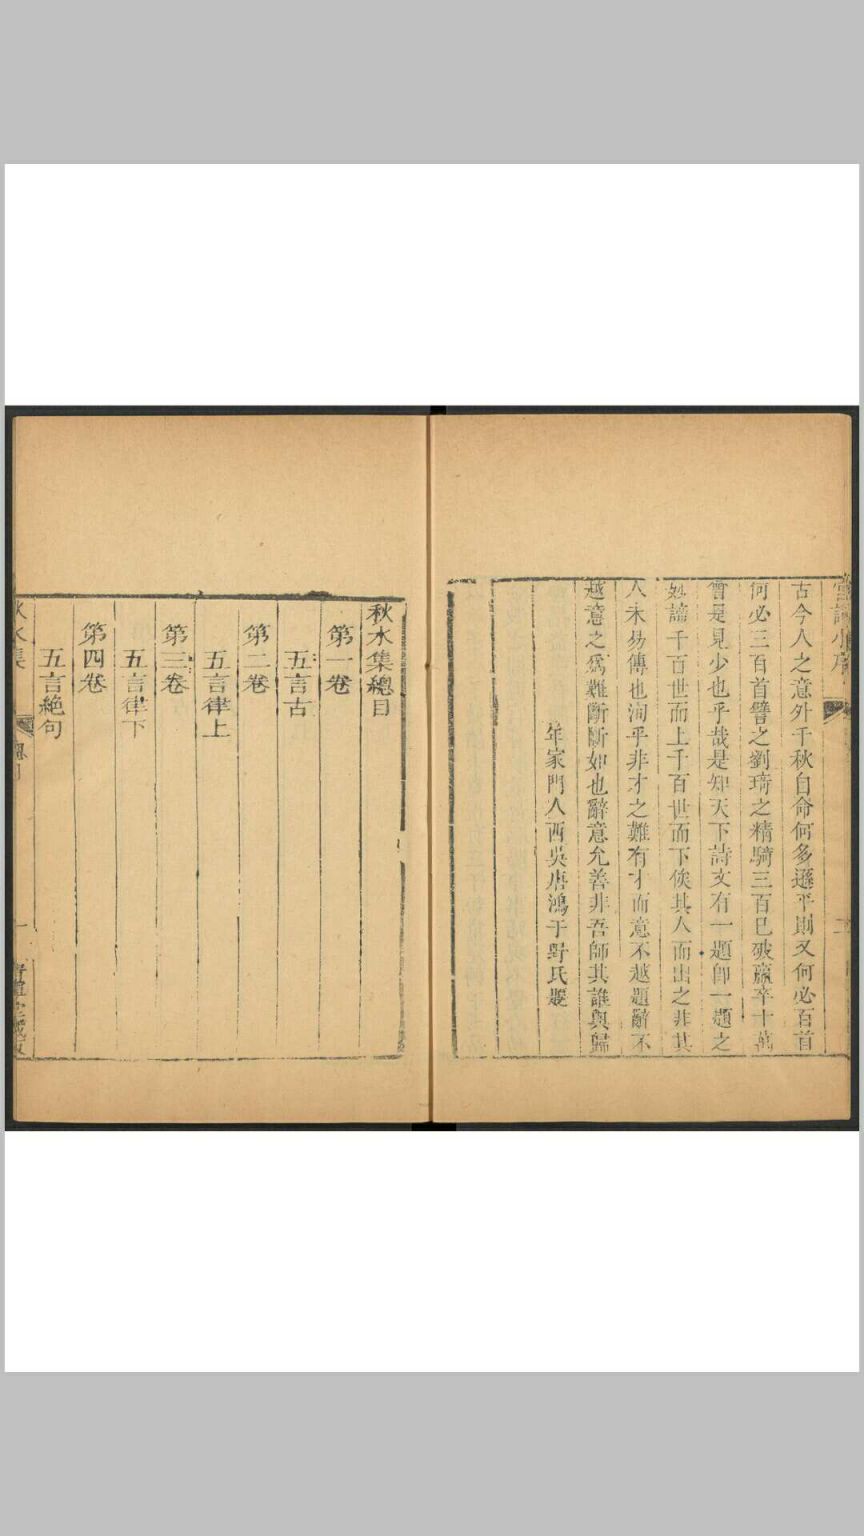 古今人之意外千秋自命何多遜乎則又何必百首
何必三百首譬之劉琦之精騎三百已破羸卒十萬
曾是見少也乎哉是知天下詩文有一題卽一題之
妙諦千百世而上千百世而下俟其人而出之非其
人未易傳也洵乎非才之難有才而意不越題辭不
越意之爲難斷斷如也辭意允善非吾師其誰與歸
年家門人西吳唐鴻于野氏題
秋水集總目
第一卷
五言古
第二卷
五言律上
第三卷
五言律下
第四卷
五言絕句
秋水集